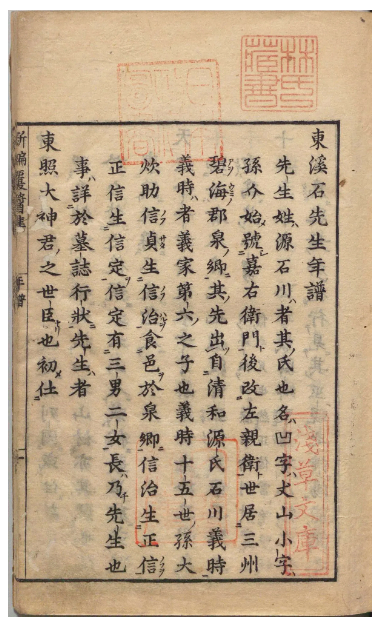 林氏藏書
東溪石先生年譜
先生姓源石川者其氏也名凹字丈山小字
孫介始號嘉右衛門後改左親衛世居三州
碧海郡泉郷其先出自清和源氏石川義時
義時者義家第六之子也義時十五世孫大
炊助信貞生信治食邑於泉郷信治生正信
正信生信定信定有三男二女長乃先生也
事詳於墓誌行狀先生者
東照大神君之世臣也初仕
新編覆醬集 年譜 一
淺草文庫